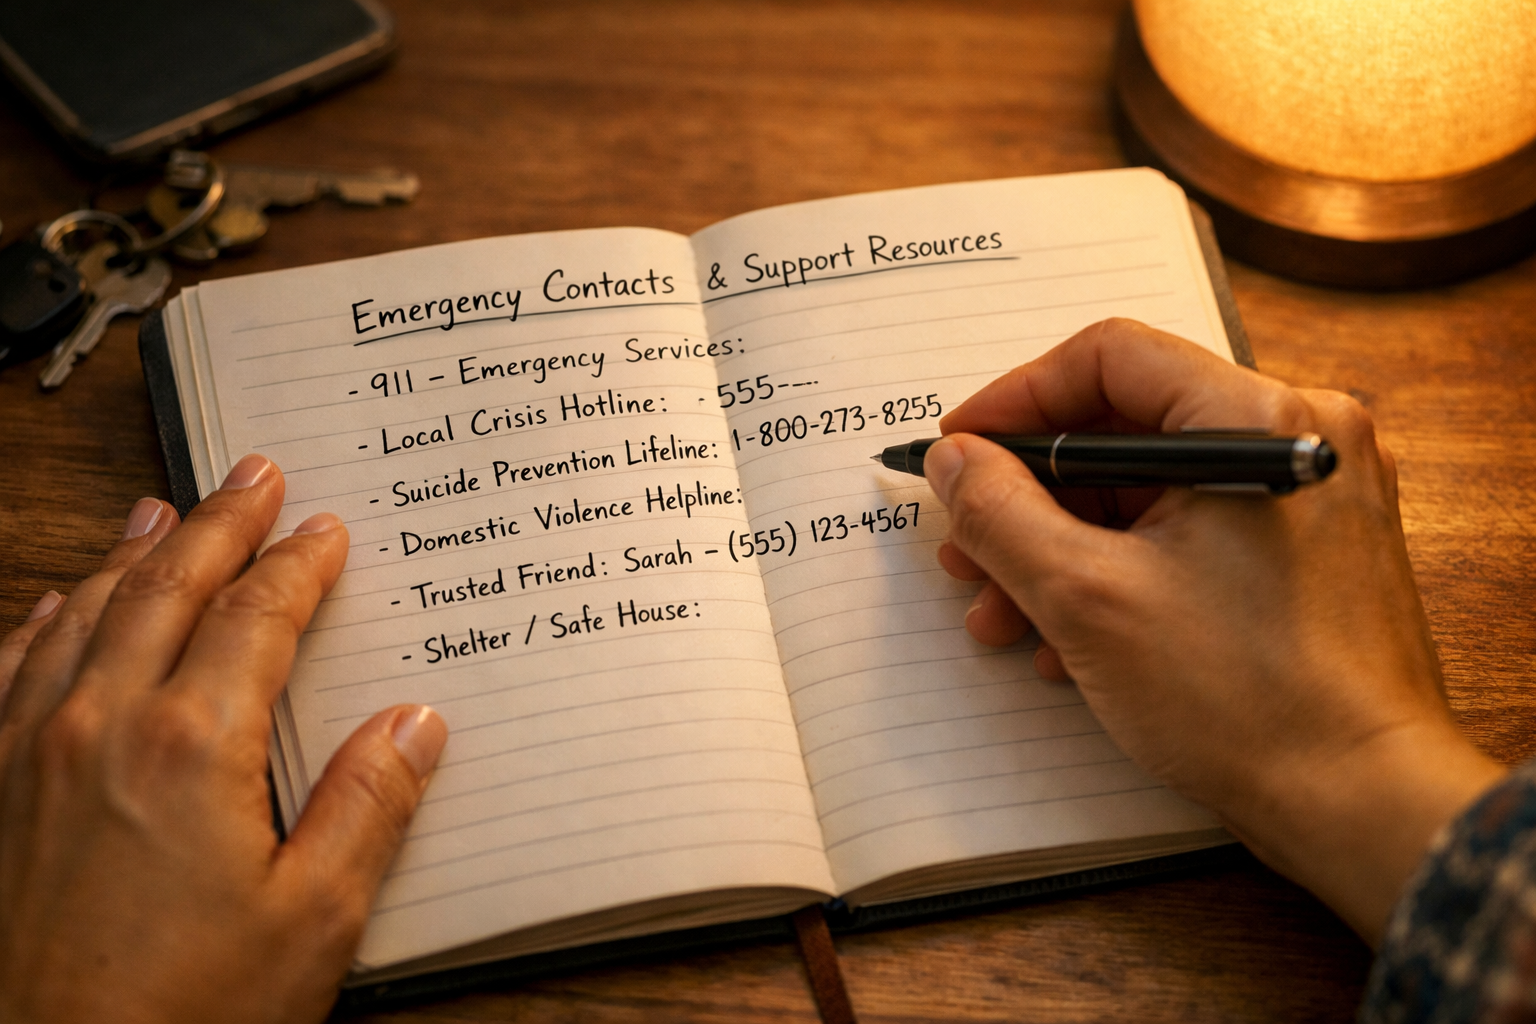 Emergency Contacts & Support Resources
- 911 – Emergency Services:
- Local Crisis Hotline: - 555----
- Suicide Prevention Lifeline: 1-800-273-8255
- Domestic Violence Helpline:
- Trusted Friend: Sarah – (555) 123-4567
- Shelter / Safe House: